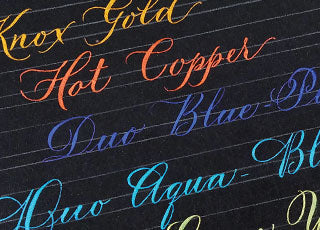 Knox Gold
Hot Copper
Duo Blue
Duo Aqua-Bl